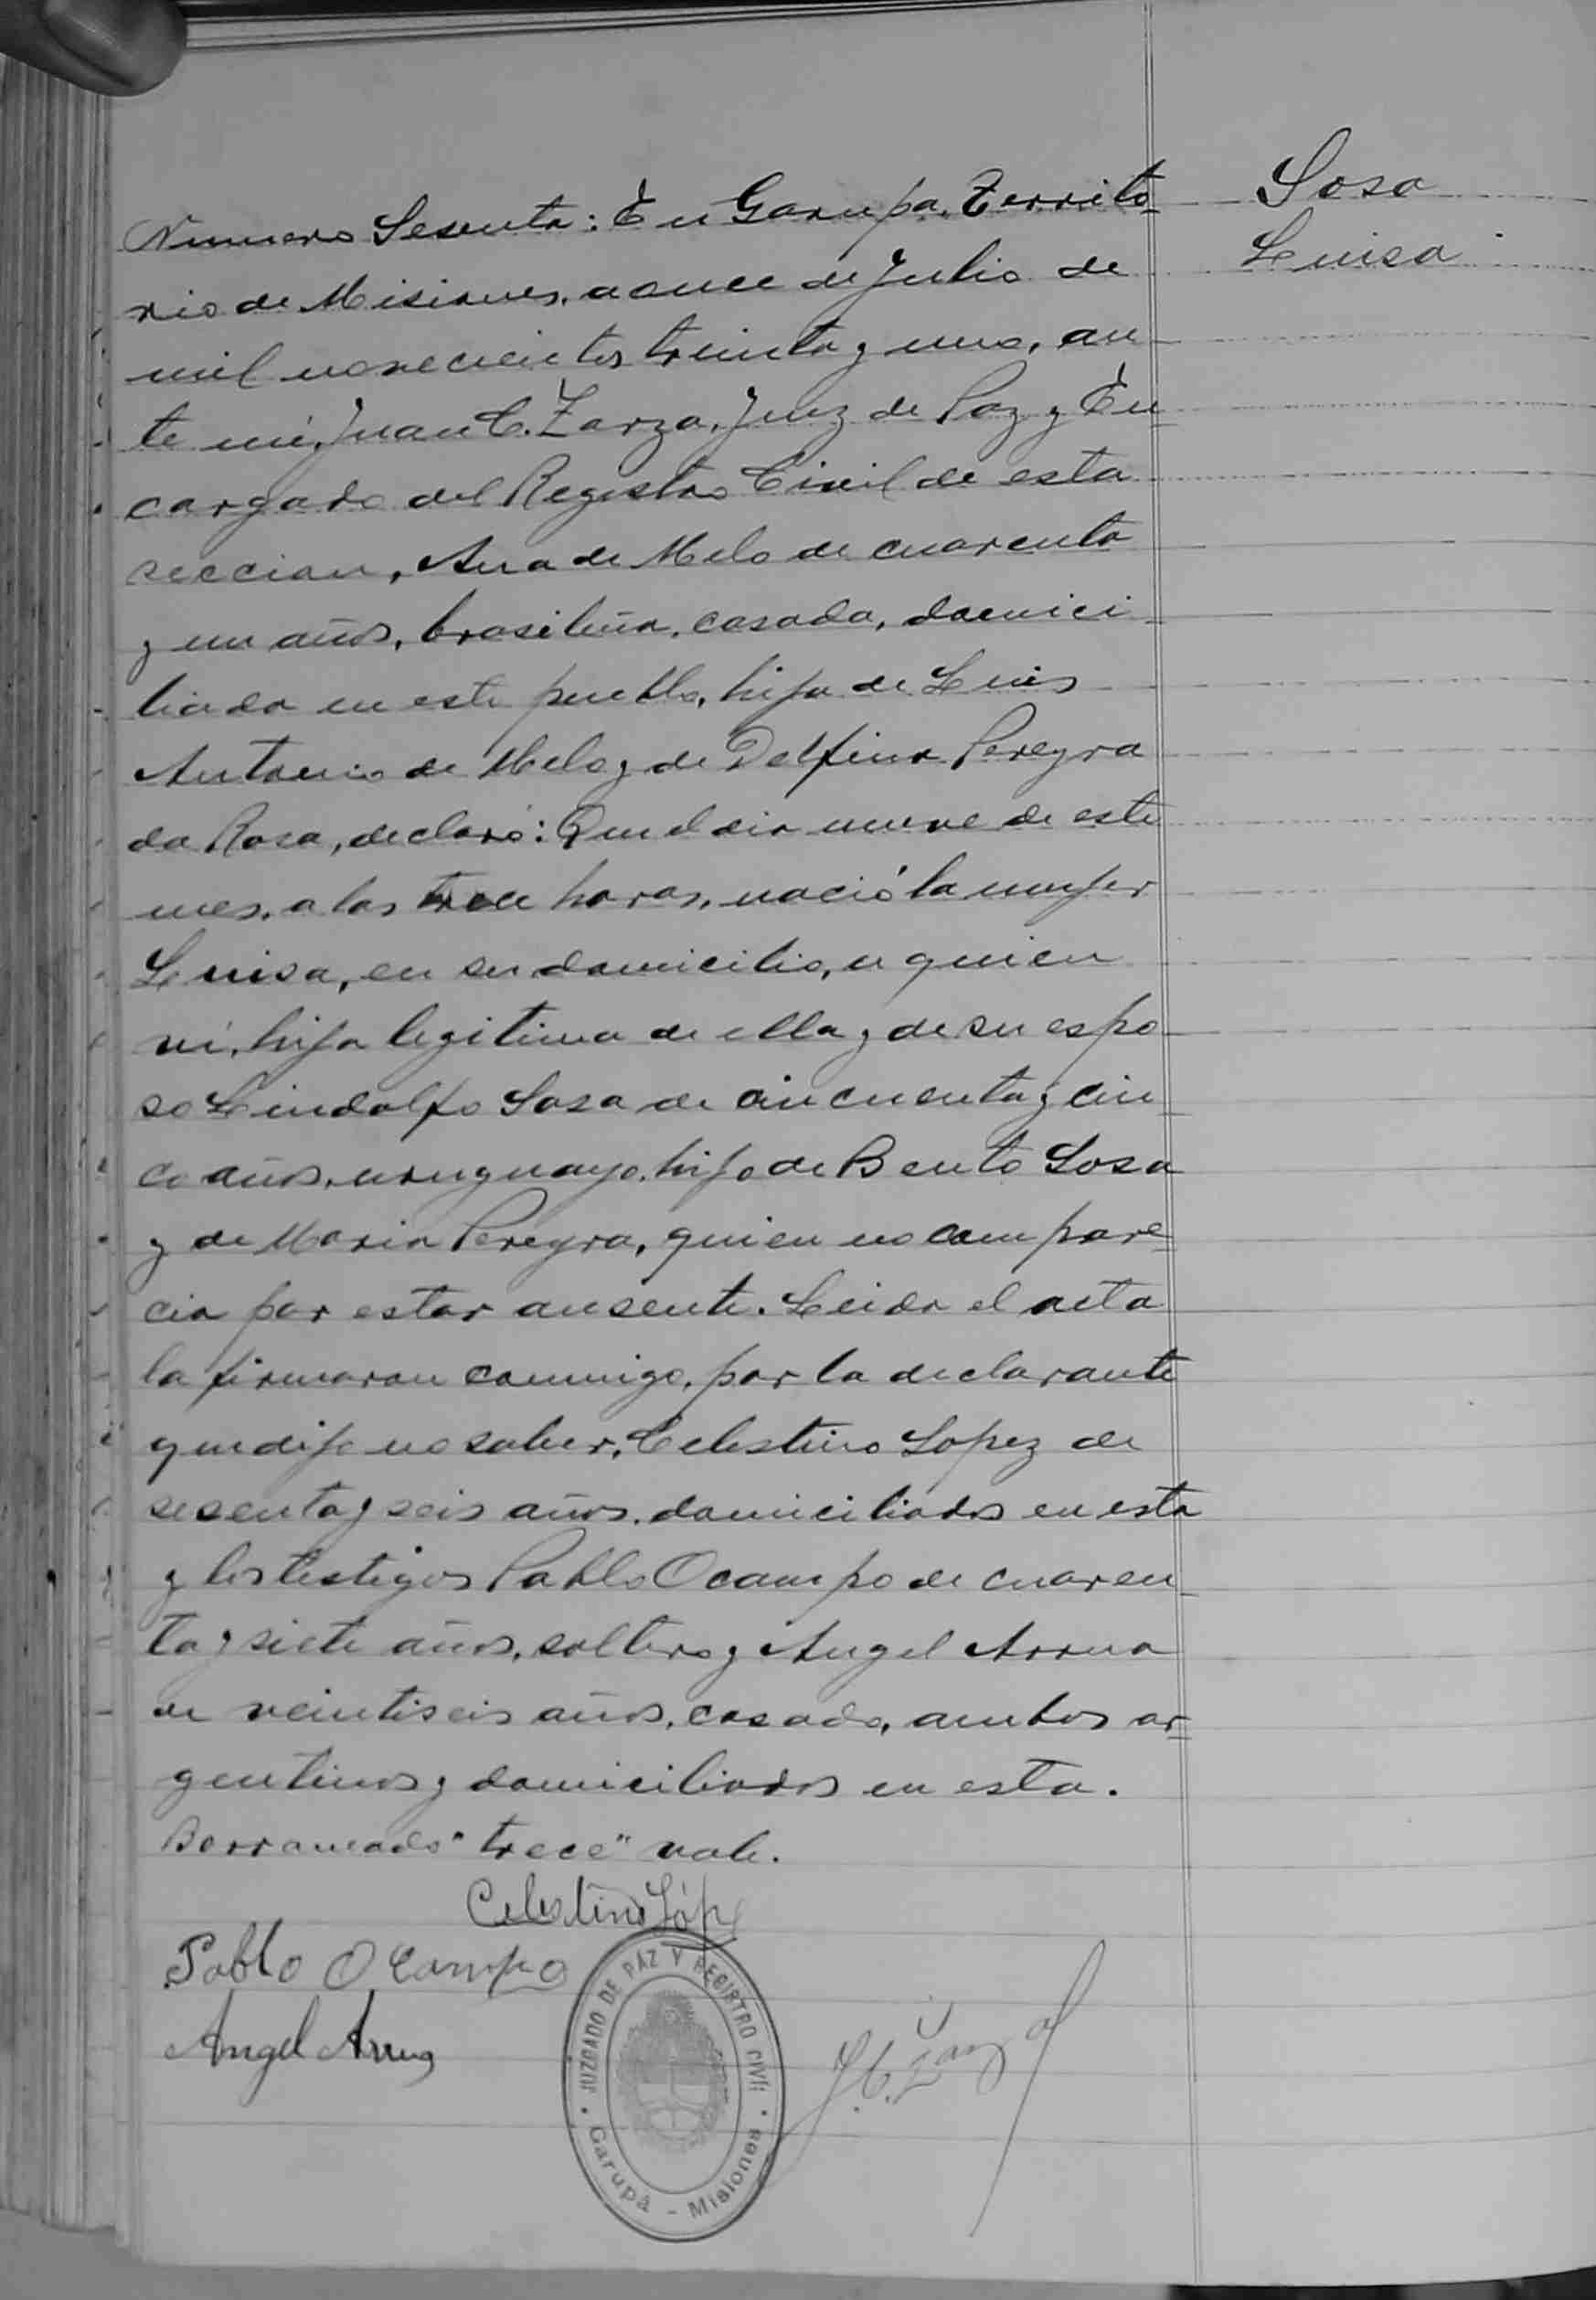 Sosa
Luisa
Numero Sesenta: En Garupa, Territo=
rio de Misiones, a once de Julio de
mil novecientos treinta y uno, an-
te mí, Juan C. Zarza, Juez de Paz y En=
cargado del Registro Civil de esta
seccion, Ana de Melo de cuarenta
y un años, brasileña, casada, domici-
liada en este pueblo, hija de Luis
Antonio de Melo y de Delfina Pereyra
da Rosa, declaró: Que el dia nueve de este
mes, a las trece horas, nació la mujer
Luisa, en su domicilio, a quien
ví, hija legitima de ella y de su espo-
so Lindolfo Sosa de cincuenta y cin-
co años, uruguayo, hijo de Bento Sosa
y de Maria Pereyra, quien no compare=
cia por estar ausente. Leida el acta
la firmaron conmigo, por la declarante
que dijo no saber, Celestino Lopez de
sesenta y seis años, domiciliados en esta
y los testigos Pablo Ocampo de cuaren-
ta y siete años, soltero y Angel Arrua
de veintiseis años, casado, ambos ar=
gentinos y domiciliados en esta.
Borroneado "trece" vale.
Celestino Lóp
Pablo Ocampo
Angel Arrua
JUZGADO DE PAZ Y REGISTRO CIVIL
Garupá - Misiones
J. C. Zarza